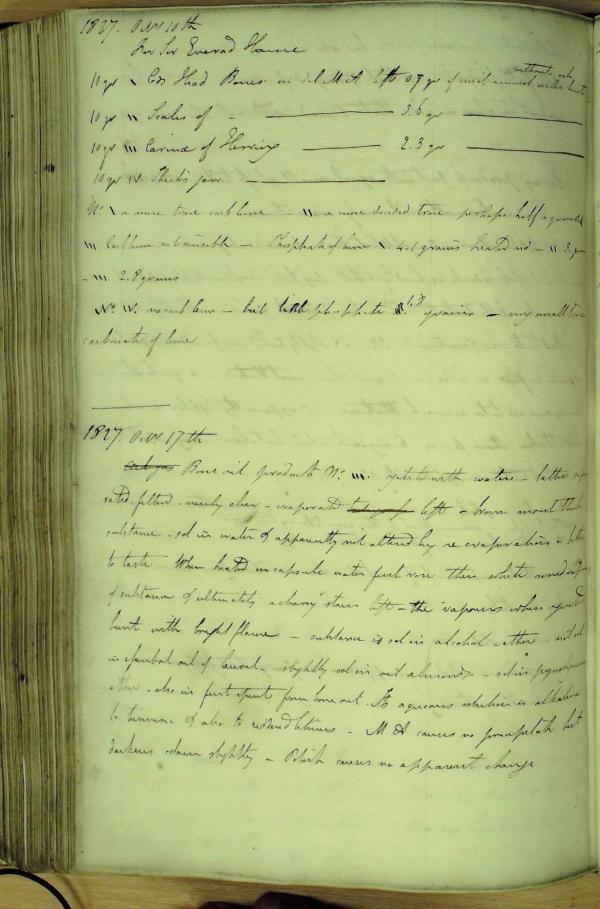 1827. Octr 10th
For Sir Everad Home
10 gr \ Cods Head Bones in dil M A left 0.7 gr of animal matter without ash
10 gr \\ Scales of - 3.6 gr
10 gr \\\ Carinæ of Herring 2.3 gr
10 gr IV. Shark's jaw
No \ a mere trace carb lime \\ a more decided trace perhaps half a grain
\\\ Carb lime not sensible - Phosphate of lime \ 4.1 grains heated red - \\ 3. grains
- \\\ 2.8 grains
No IV. no carb lime - but phosphate grains - very small trace
carbonate of lime
1827. Octr 17th
Bone oil products No \\\. agitated with water - latter
rated - filtered - nearly clear - evaporated left a brown moist thick
substance - sol in water & apparently not altered by re evaporation - bitter
to taste. When heated in capsule water first rose then white vapours
of substance & ultimately a charry stain left - the vapours when ignited
burnt with bright flame - substance is sol in alcohol - ether - not sol
in essential oil of laurel - slightly sol in oil almonds - sol in pyroligneous
ether - also in first spirit from bone oil. Its aqueous solution is alkaline
to turmeric & also to reddened litmus - M A causes no precipitate but
darkens colour slightly - Potash causes no apparent change